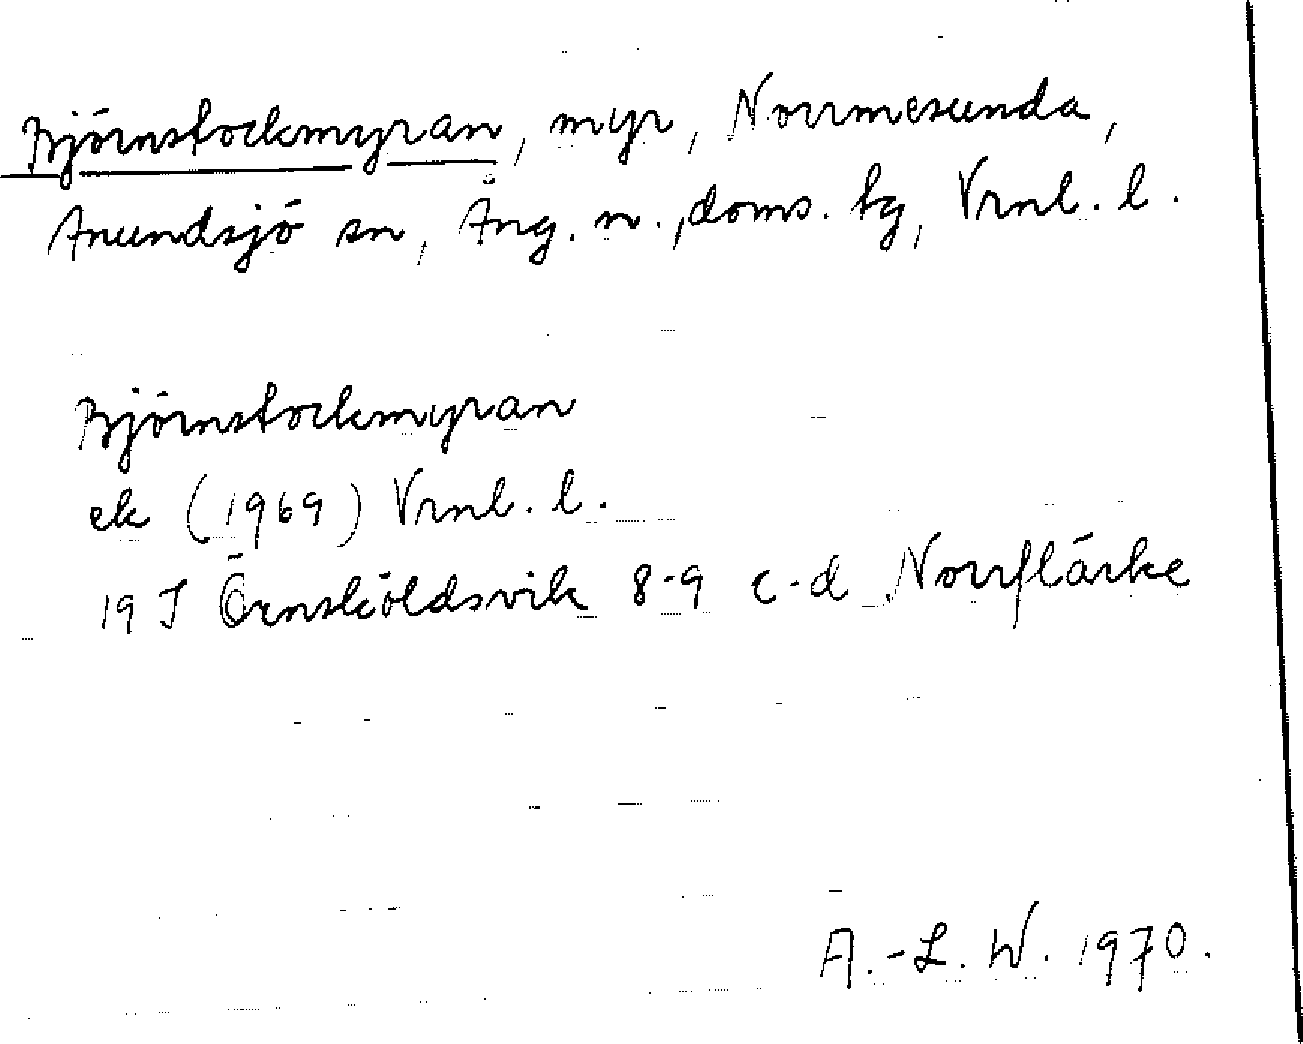 Björnstockmyran, myr, Norrmesunda,
Anundsjö sn, Ång. n., doms. tg, Vrnl. l.
Björnstockmyran
ek (1969) Vrnl. l.
19 J Örnsköldsvik 8-9 c-d Norrflärke
A.-L. W. 1970.